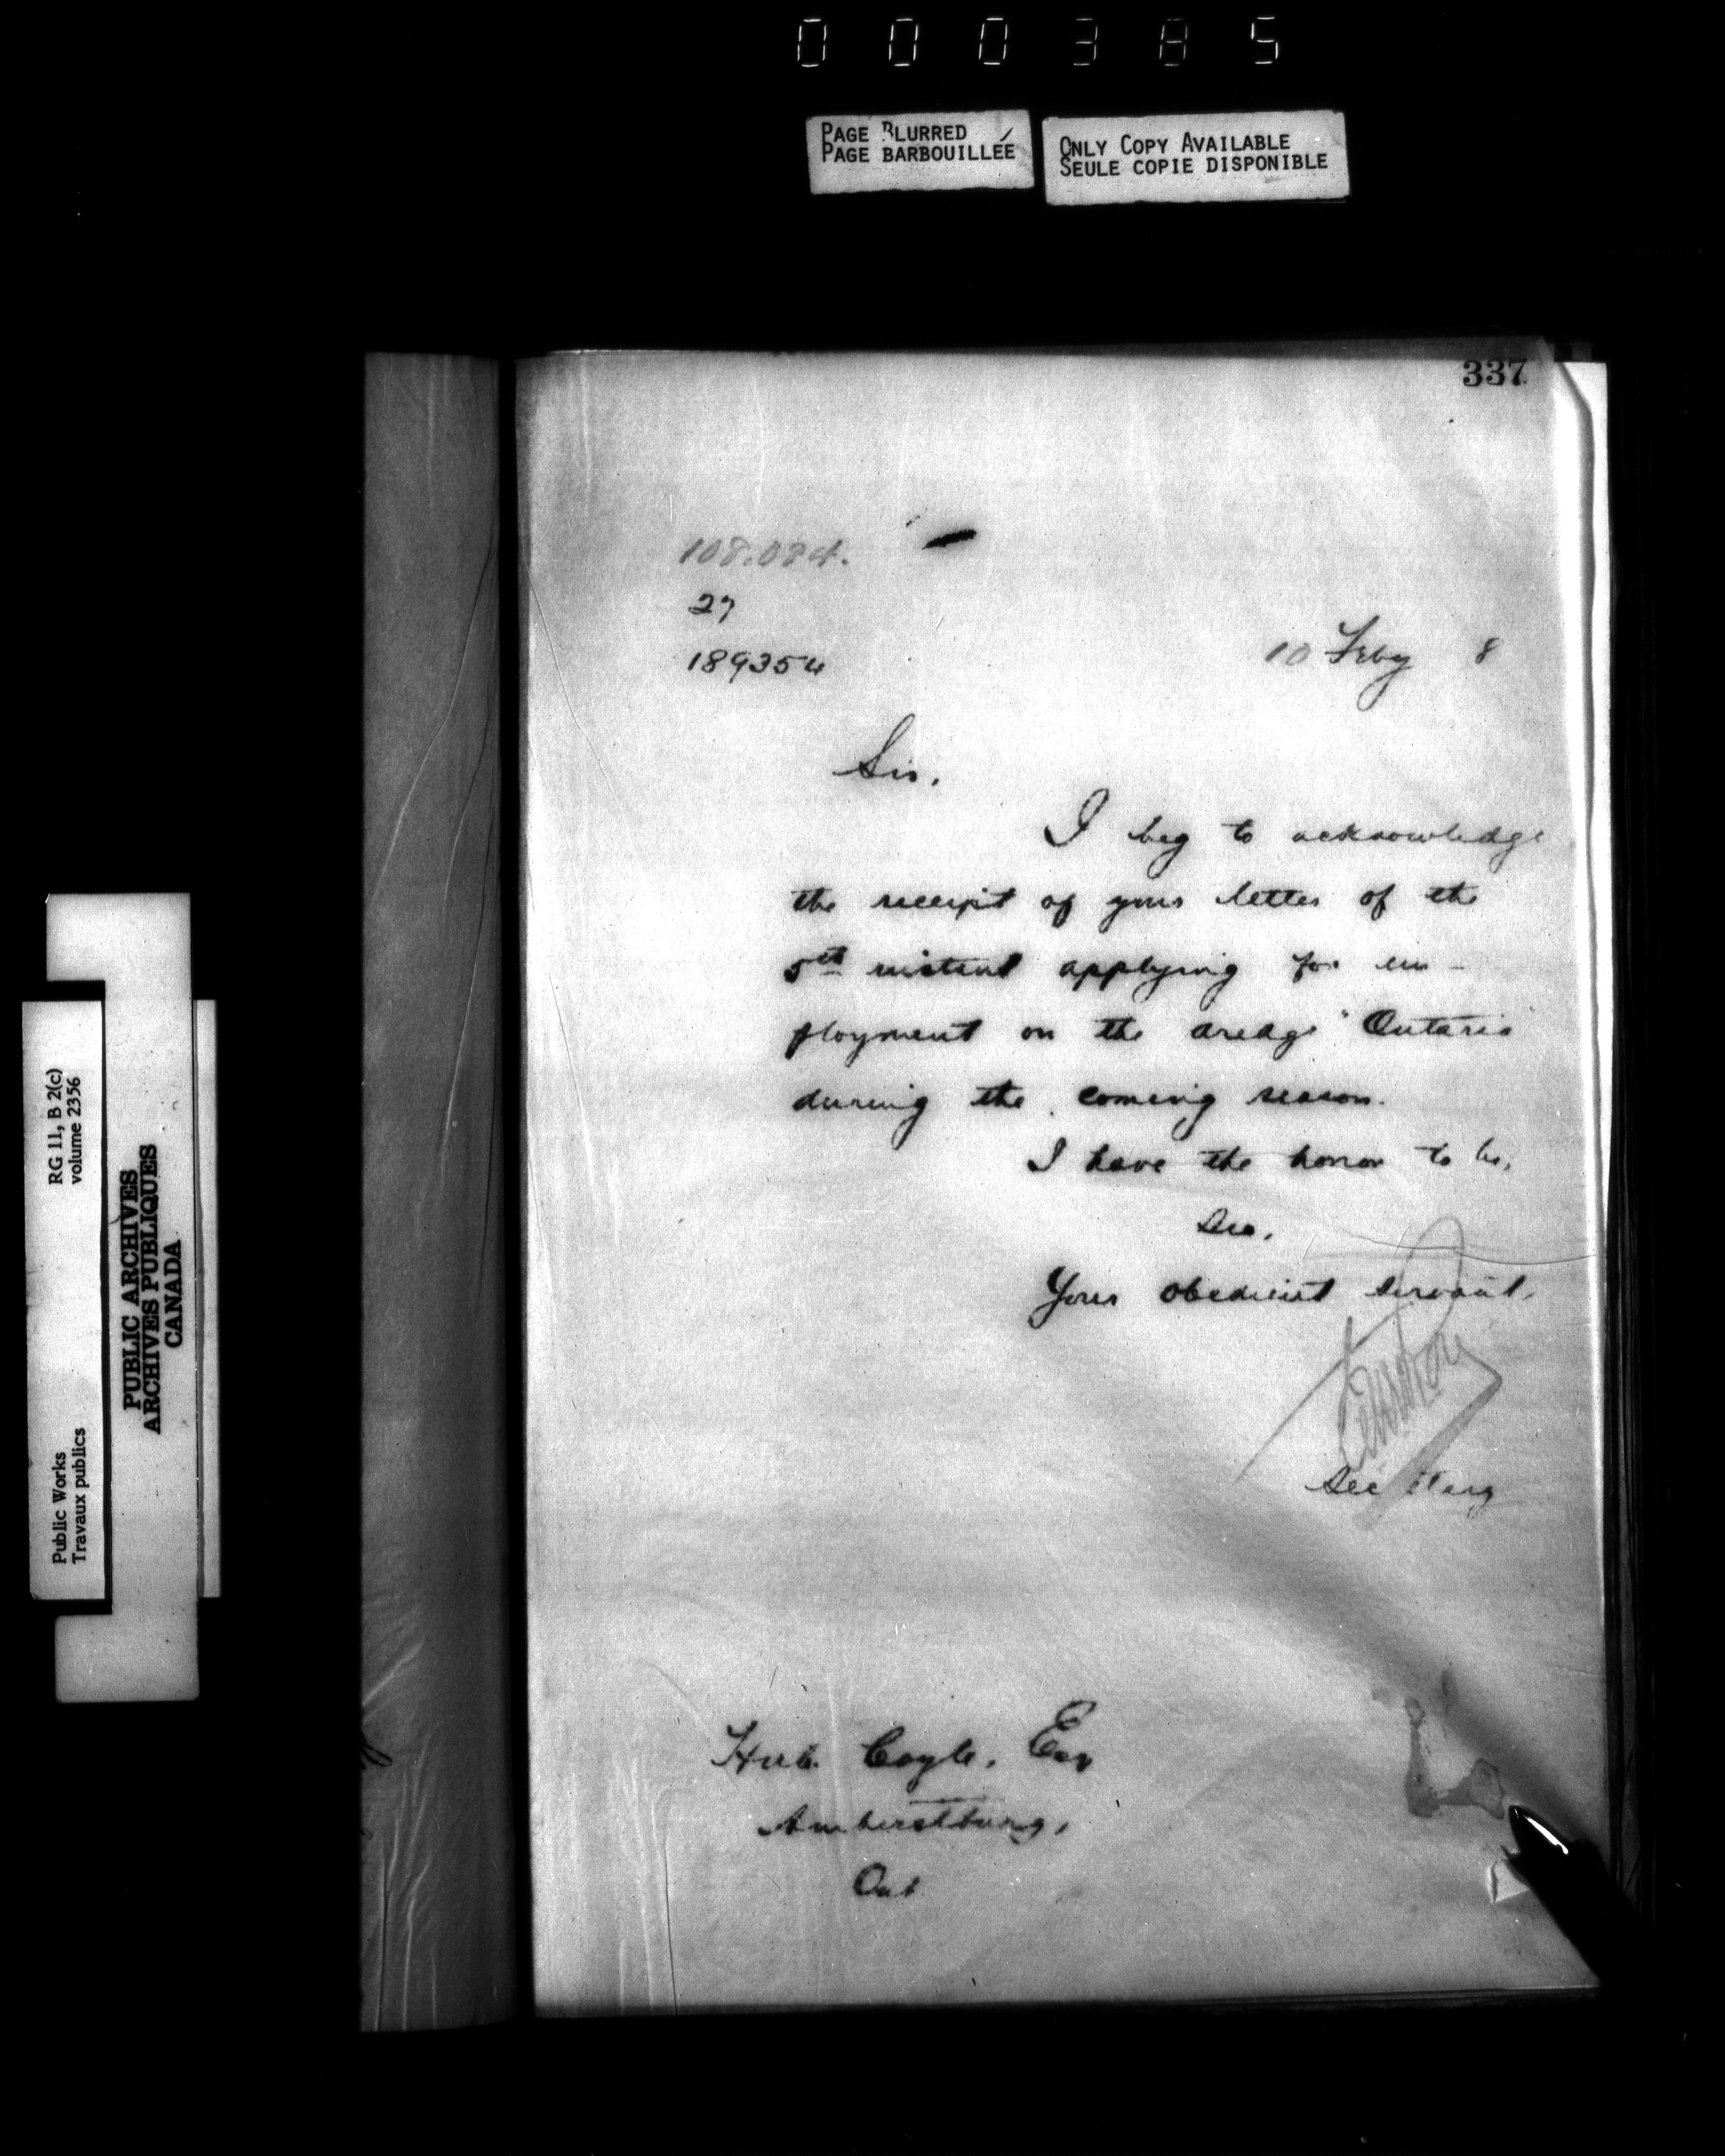 000385
PAGE BLURRED
PAGE BARBOUILLÉE
ONLY COPY AVAILABLE
SEULE COPIE DISPONIBLE
337
108.084.
27
189354
10 Feby 8
Sir,
I beg to acknowledge
the receipt of your letter of the
5th instant applying for em-
ployment on the dredge "Ontario"
during the coming season.
I have the honor to be,
Sir,
Your obedient servant,
Secretary
Coyle, Esq
Amherstburg,
Ont
RG 11, B 2(c)
volume 2356
PUBLIC ARCHIVES
ARCHIVES PUBLIQUES
CANADA
Public Works
Travaux publics